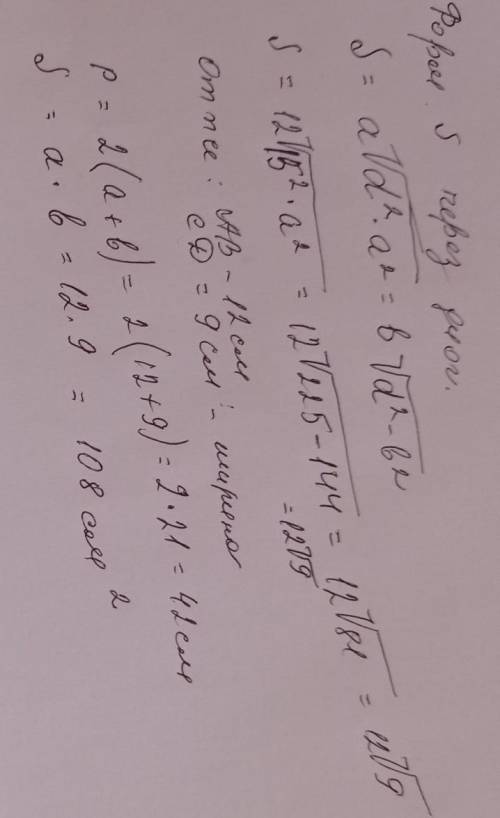 Форм. S через диог.
S = a√d²·a² = b√d²-b²
S = 12√15²·a² = 12√225-144 = 12√81 = 12√9
= 12√9
AB - 12 см
СД = 9 см - ширина
P = 2(a+b) = 2(12+9) = 2·21 = 42 см
S = a·b = 12·9 = 108 см 2